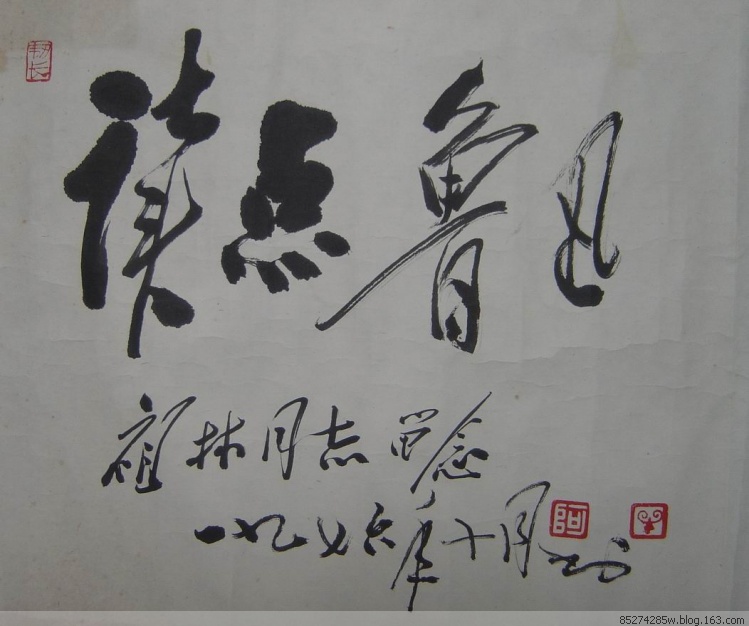 读点鲁迅
林同志留念
一九七六年十月
85274285w.blog.163.com